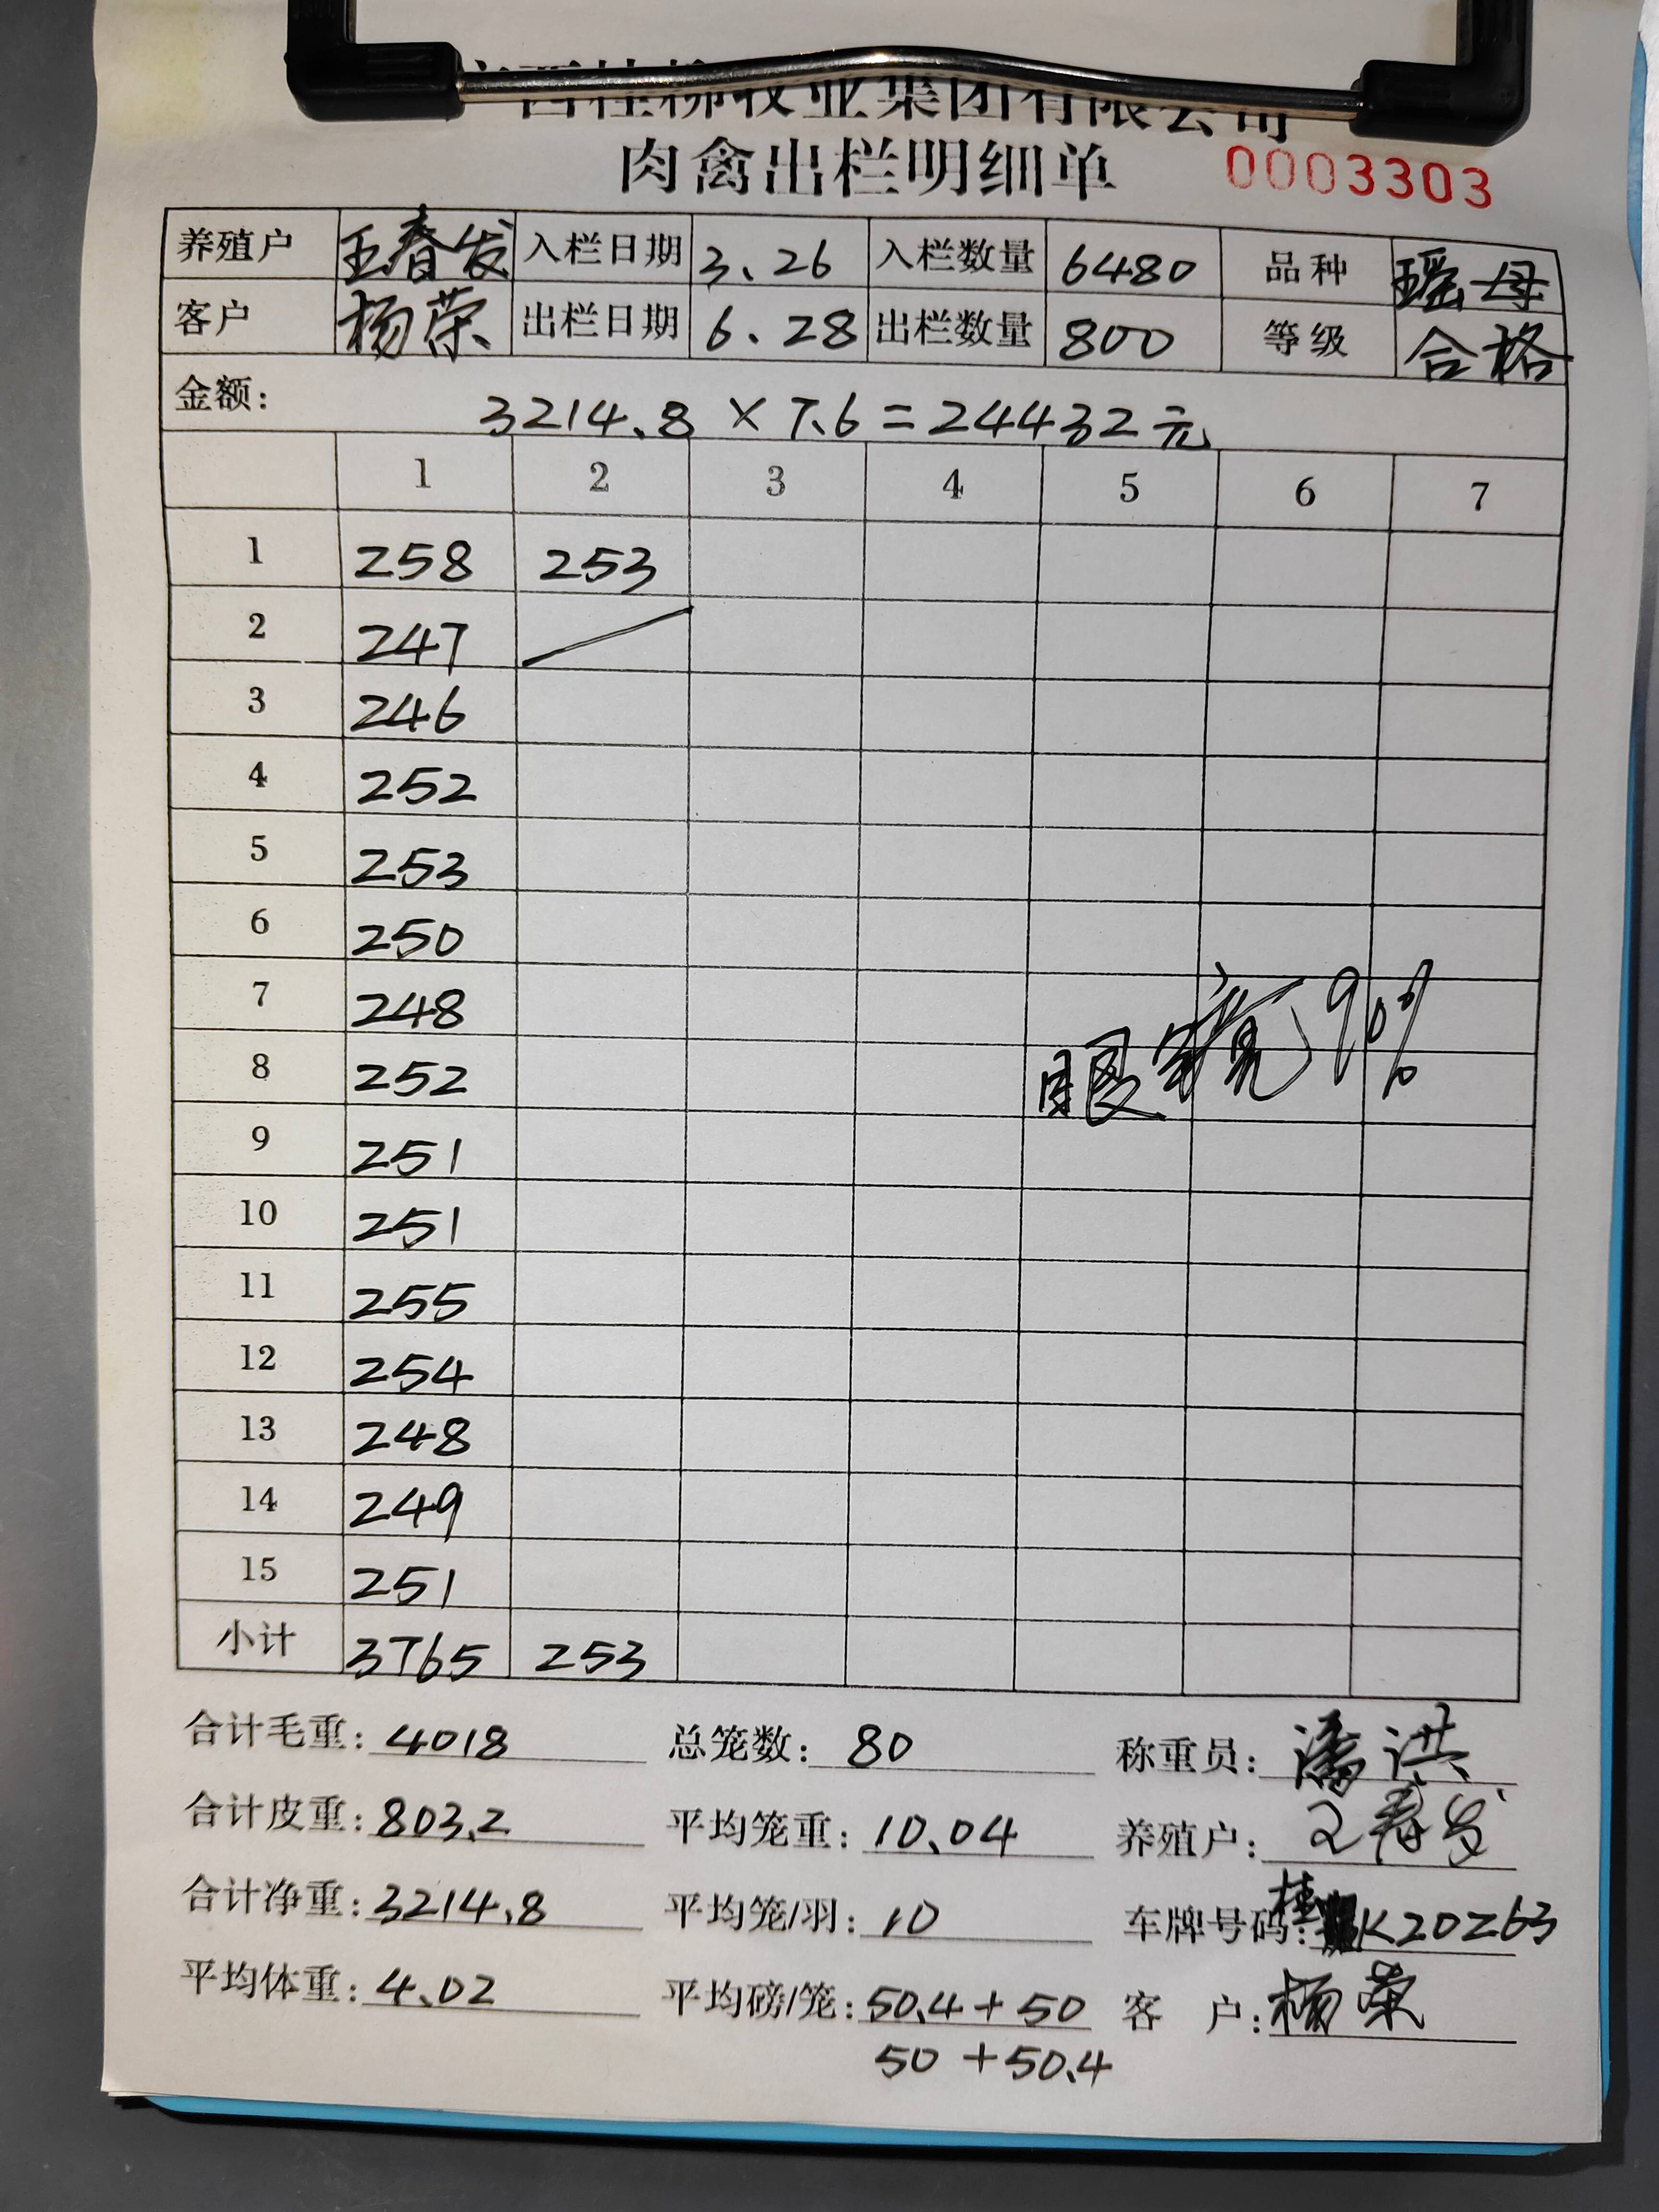 西桂柳牧业集团有限公司
肉禽出栏明细单 0003303
养殖户 王春发 入栏日期 3.26 入栏数量 6480 品种 瑶母
客户 杨荣 出栏日期 6.28 出栏数量 800 等级 合格
金额: 3214.8 × 7.6 = 24432元
1 2 3 4 5 6 7
1 258 253
2 247
3 246
4 252
5 253
6 250
7 248
8 252
眼 90%
9 251
10 251
11 255
12 254
13 248
14 249
15 251
小计 3765 253
合计毛重: 4018 总笼数: 80 称重员: 潘洪
合计皮重: 803.2 平均笼重: 10.04 养殖户: 王春发
合计净重: 3214.8 平均笼/羽: 10 车牌号码: 桂K20Z63
平均体重: 4.02 平均磅/笼: 50.4+50 客 户: 杨荣
50+50.4